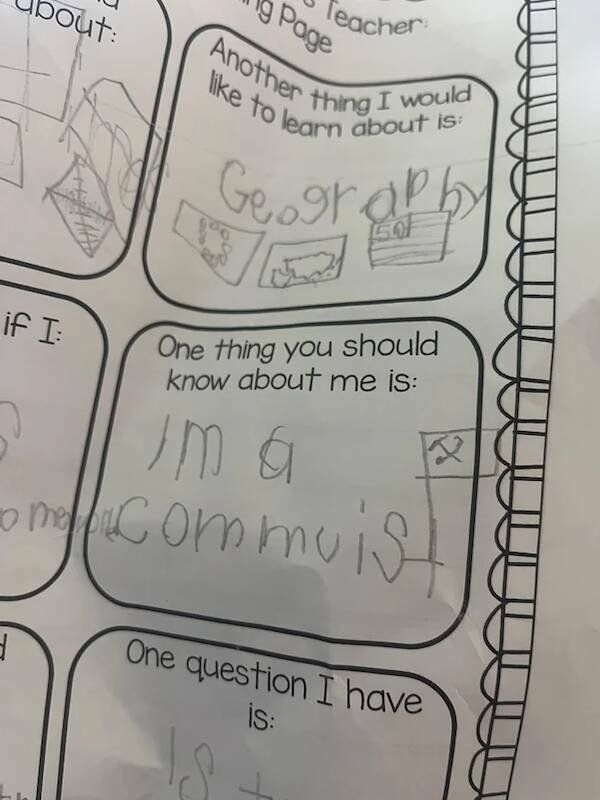 about:
Teacher:
ng Page
Another thing I would
like to learn about is:
Geography
if I:
One thing you should
know about me is:
Im a
Commuist
One question I have
is:
Is